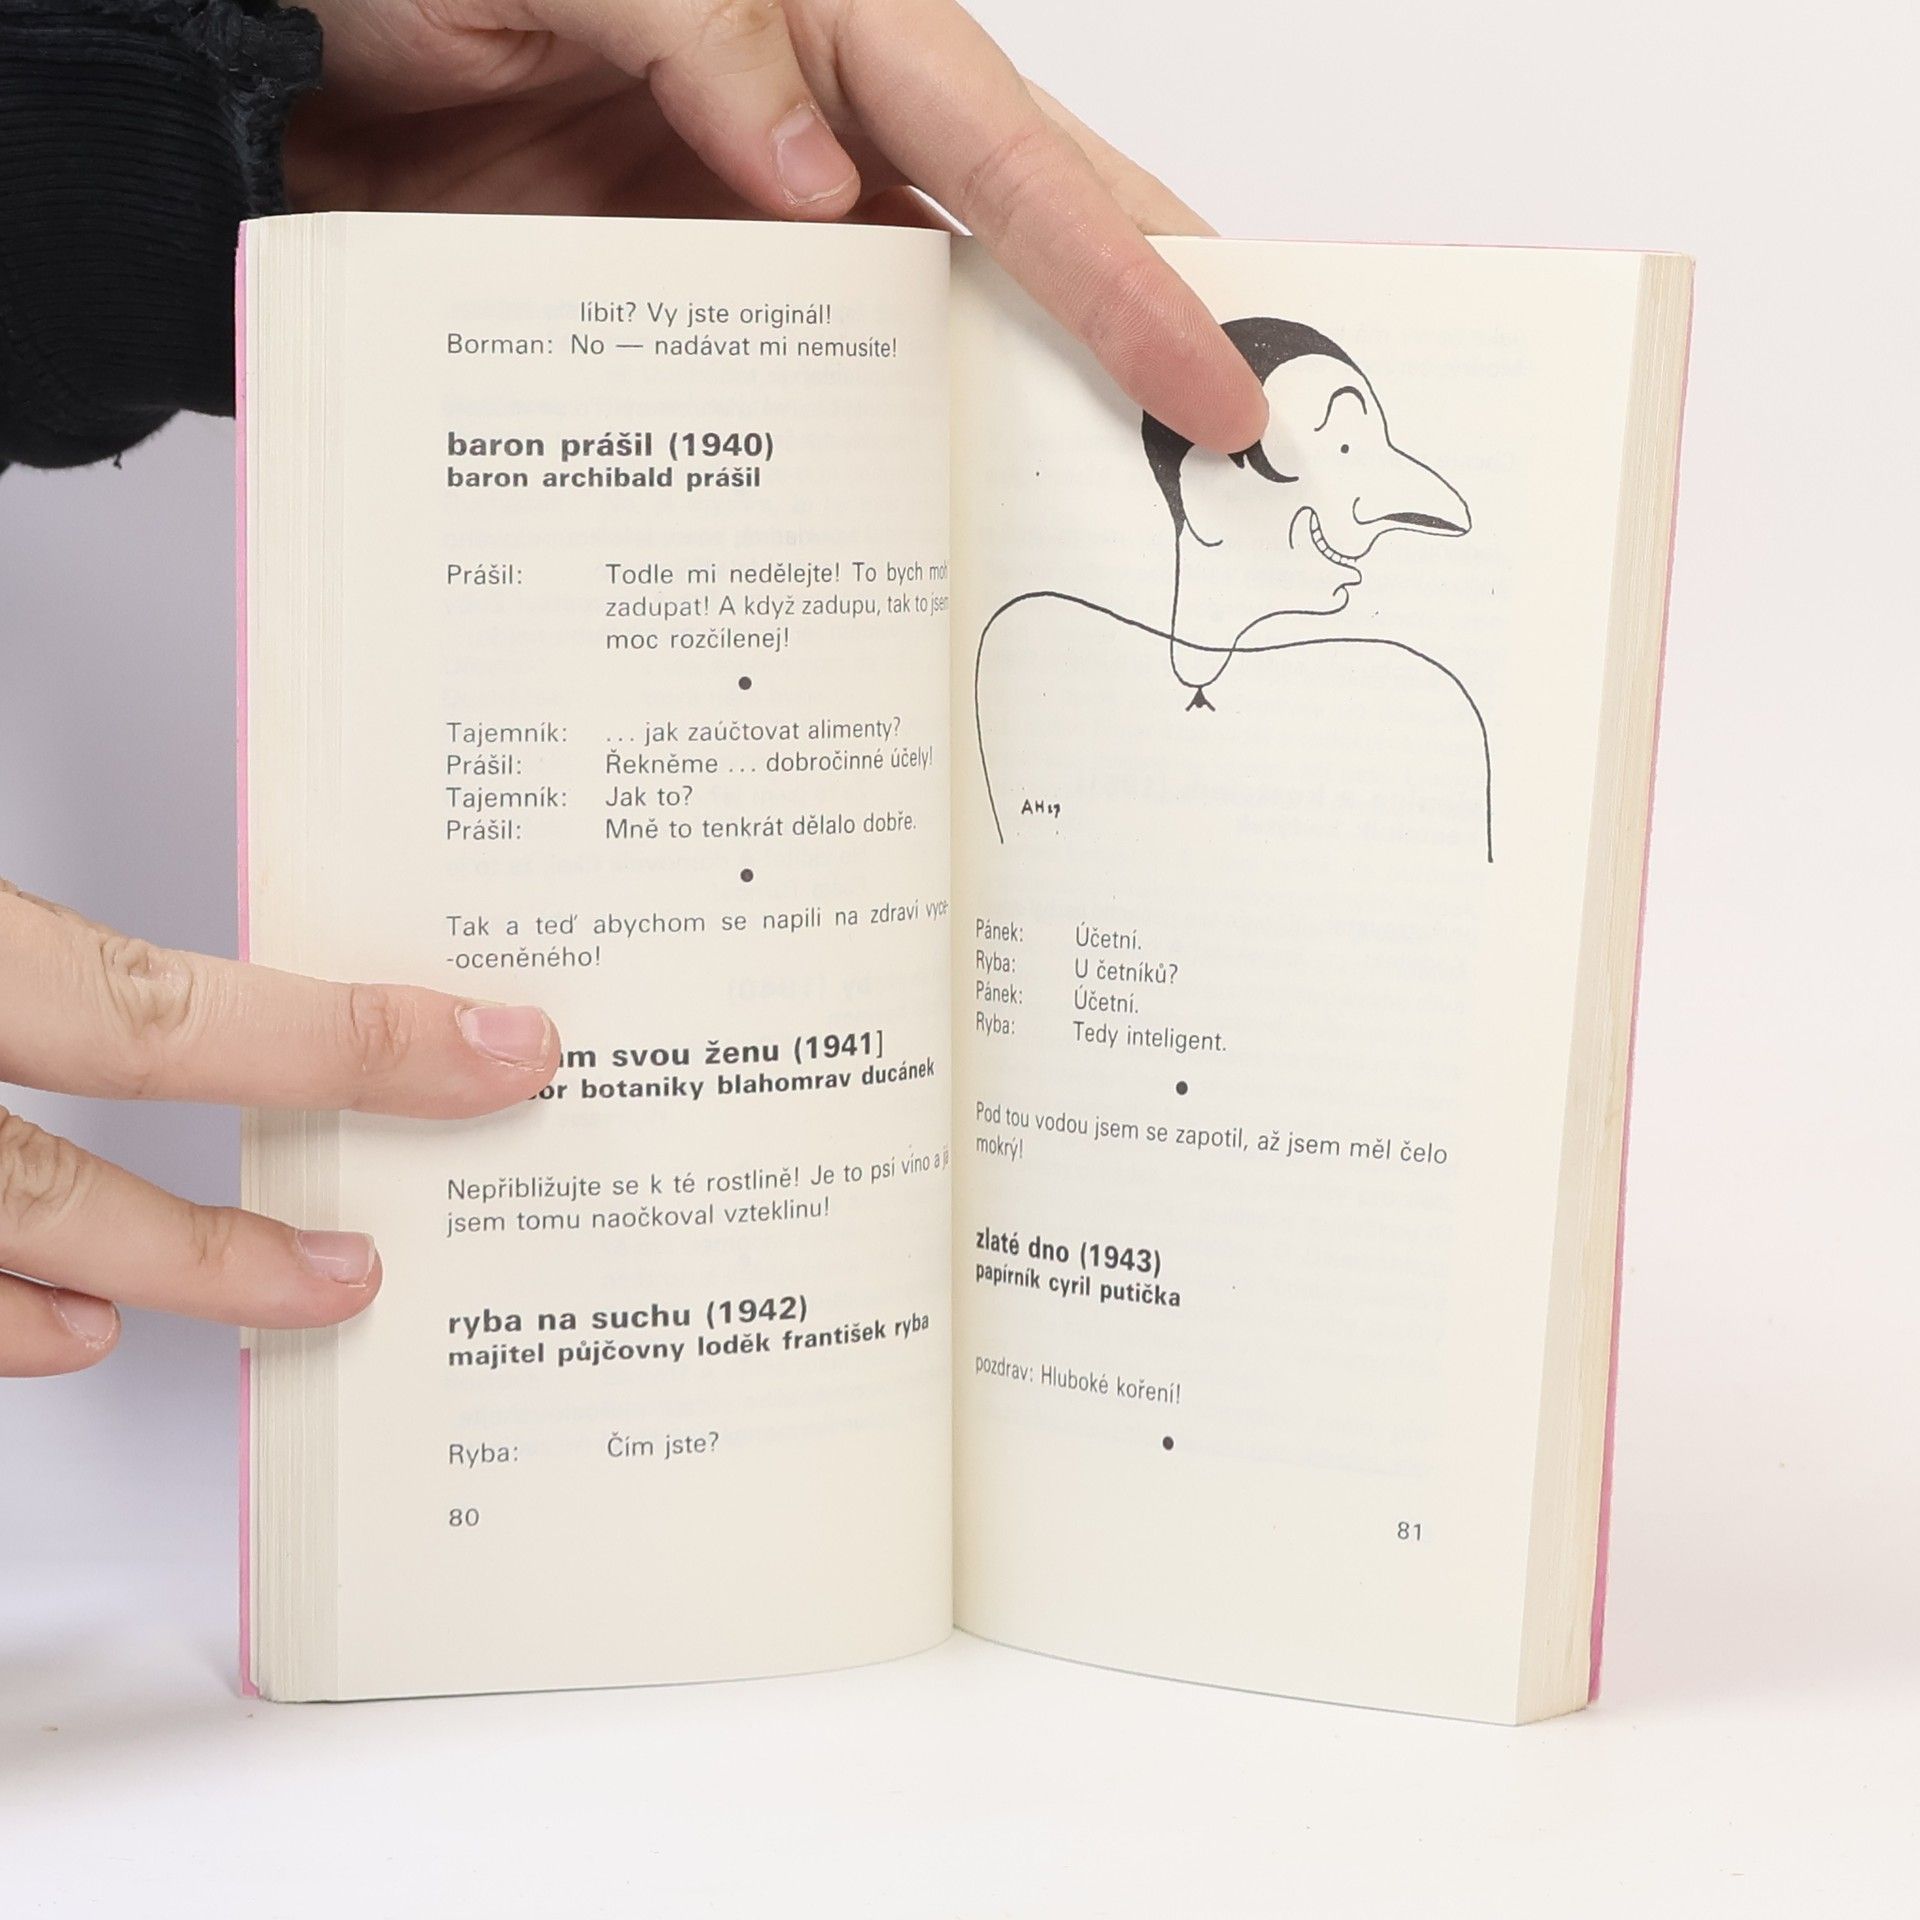 líbit? Vy jste originál!
Borman: No — nadávat mi nemusíte!
baron prášil (1940)
baron archibald prášil
Prášil: Todle mi nedělejte! To bych moh
zadupat! A když zadupu, tak to jsem
moc rozčílenej!
Tajemník: ... jak zaúčtovat alimenty?
Prášil: Řekněme ... dobročinné účely!
Tajemník: Jak to?
Prášil: Mně to tenkrát dělalo dobře.
Tak a teď abychom se napili na zdraví
-oceněného!
svou ženu (1941]
botaniky blahomrav ducánek
Nepřibližujte se k té rostlině! Je to psí víno a já
jsem tomu naočkoval vzteklinu!
ryba na suchu (1942)
majitel půjčovny loděk františek ryba
Ryba: Čím jste?
80
AH
Pánek: Účetní.
Ryba: U četníků?
Pánek: Účetní.
Ryba: Tedy inteligent.
Pod tou vodou jsem se zapotil, až jsem měl čelo
mokrý!
zlaté dno (1943)
papírník cyril putička
pozdrav: Hluboké koření!
81